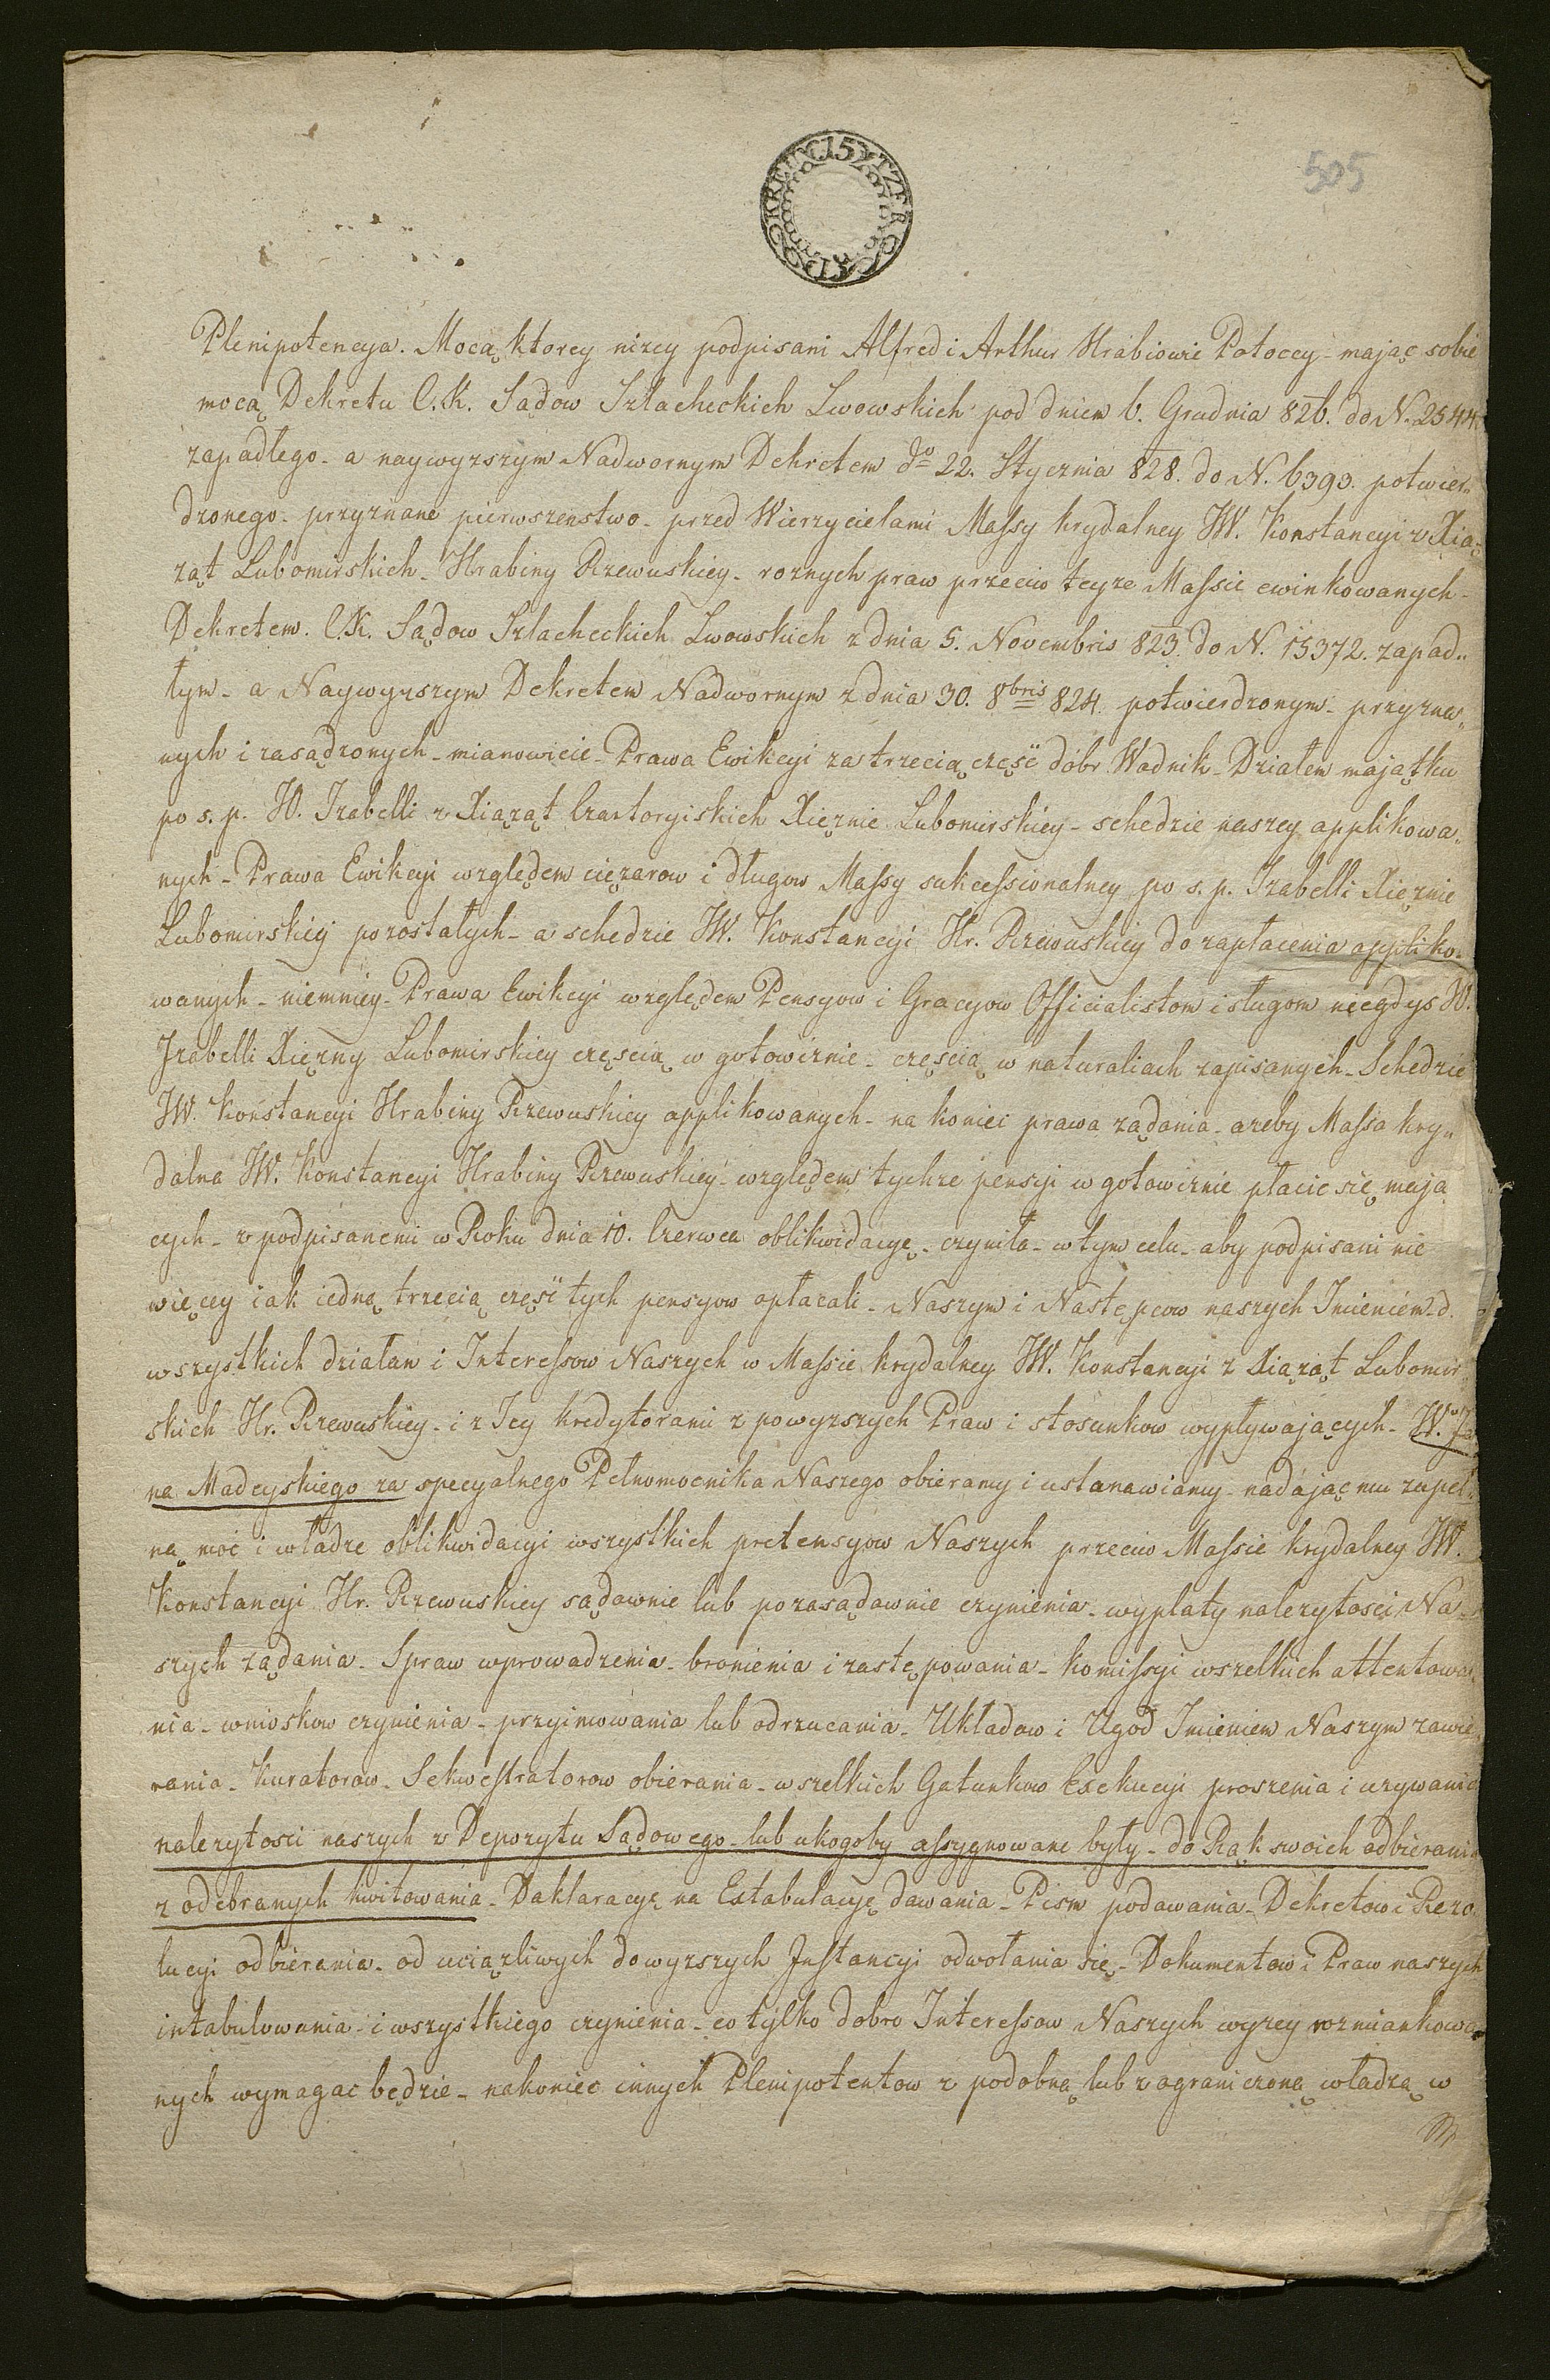 505
15 KREUTZER
Plenipotencya. Mocą ktorey nizey podpisani Alfred i Arthur Hrabiowie Potoccy - maiąc sobie
mocą Dekretu C.K. Sądow Szlacheckich Lwowskich pod dniem 6. Grudnia 826. do N. 2544
zapadłego - a naywyzszym Nadwornym Dekretem ddo 22. Stycznia 828. do N. 6393. potwier„
dzonego - przyznane pierwszenstwo - przed Wierzycielami Massy krydalney JW. Konstancyi z Xią„
ząt Lubomirskich - Hrabiny Rzewuskiey - roznych praw przeciw teyze Massie ewinkowanych -
Dekretem C.K. Sądow Szlacheckich Lwowskich z dnia 5. Novembris 823. do N. 15372. zapad„
łym - a Naywyzszym Dekretem Nadwornym z dnia 30. 8bris 824. potwierdzonym - przyzna„
nych i zasądzonych - mianowicie - Prawa Ewikcyi za trzecią część dóbr Wadnik - Działem maiątku
po s. p. JO. Izabelli z Xiąząt Czartoryiskich Xięznie Lubomirskiey - schedzie naszey applikowa„
nych - Prawa Ewikcyi względem cięzarow i długow Massy sukcessionalney po s. p. Izabelli Xięznie
Lubomirskiey pozostałych - a schedzie JW. Konstancyi Hr. Rzewuskiey do zapłacenia appliko„
wanych - niemniey - Prawa Ewikcyi względem Pensyow i Gracyow Officialistom i sługom niegdys JO.
Izabelli Xięzny Lubomirskiey częscią w gotowiznie - częscią w naturaliach zapisanych - Schedzie
JW. Konstancyi Hrabiny Rzewuskiey applikowanych - na koniec prawa ządania - azeby Massa kry„
dalna JW. Konstancyi Hrabiny Rzewuskiey - względem tychze pensyi w gotowiznie płacic się maią
cych - z podpisanemi w Roku dnia 10. Czerwca oblikwidacyę - czyniła - w tym celu - aby podpisani nie
więcey iak iedną trzecią część tych pensyow opłacali - Naszym i Następcow naszych Imieniem - d.
wszystkich działan i Interessow Naszych w Massie krydalney JW. Konstancyi z Xiąząt Lubomir„
skich Hr. Rzewuskiey - i z Jey kredytorami z powyzszych Praw i stosunkow wypływaiących - W. Ja
na Madeyskiego za specyalnego Pełnomocnika Naszego obieramy i ustanawiamy - nadaiąc mu zupeł„
ną moc i władzę oblikwidacyi wszystkich pretensyow Naszych przeciw Massie krydalney JW.
Konstancyi Hr. Rzewuskiey sądownie lub pozasądownie czynienia - wypłaty nalezytosci Na„
szych ządania - Spraw wprowadzenia - bronienia i zastępowania - komissyi wszelkich attentowa„
nia - wnioskow czynienia - przyimowania lub odrzucania - Układow i Ugod Imieniem Naszym zawie„
rania - Kuratorow - Sekwestratorow obierania - wszelkich Gatunkow Exekucyi proszenia i uzywania
nalezytosci naszych z Depozytu Sądowego - lub ukogoby assygnowane były - do Rąk swoich odbierania
z odebranych kwitowania - Daklaracyę na Extabulacyę dawania - Pism podawania - Dekretow i Rezo
lucyi odbierania - od uciązliwych do wyzszych Instancyi odwołania się - Dokumentow i Praw naszych
intabulowania - i wszystkiego czynienia - co tylko dobro Interessow Naszych wyzey wzmiankowa„
nych wymagac będzie - nakoniec innych Plenipotentow z podobną lub z ograniczoną władzą w